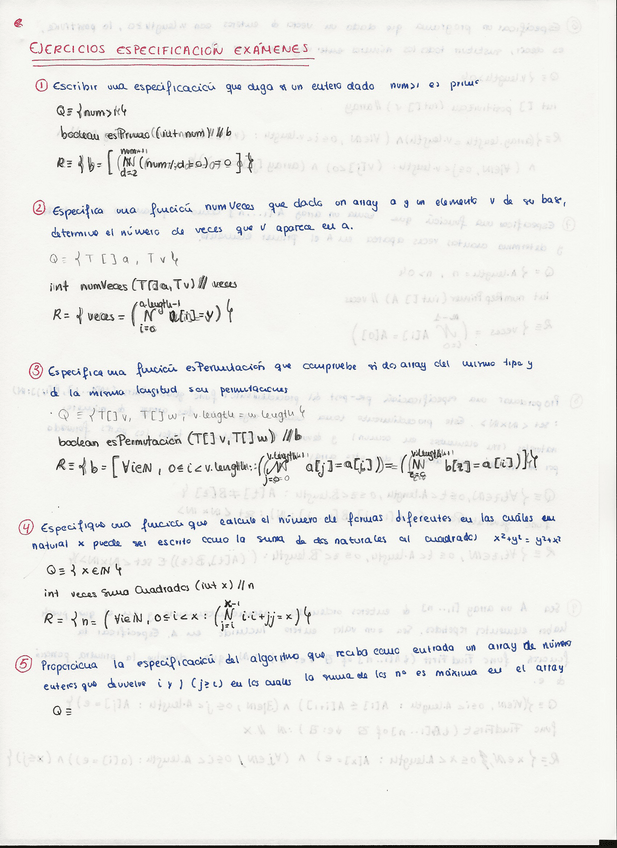 EJERCICIOS ESPECIFICACIÓN EXÁMENES
① Escribir una especificación que diga si un entero dado num≥1 es primo
Q≡ {num≥1}
boolean esPrimo (int num) // b
R≡ { b= [ ( N (num % d=0) =0 ] }
d=2
② Especifica una función numVeces que dado un array a y un elemento v de su base,
determine el número de veces que v aparece en a.
Q≡ {T[] a, T v}
int numVeces (T[] a, T v) // veces
a.length-1
R≡ { veces = ( N a[i]=v) }
i=0
③ Especifica una función esPermutación que compruebe si dos array del mismo tipo y
de la misma longitud son permutaciones
Q≡ {T[] v, T[] w ; v.length=w.length}
boolean esPermutación (T[] v, T[] w) // b
v.length-1 v.length-1
R≡ { b= [ ∀i∈N, 0≤i<v.length : ( N a[j]=a[i]) = ( N b[z]=a[i]) ] }
④ Especifique una función que calcule el número de formas diferentes en las cuáles un
natural x puede ser escrito como la suma de dos naturales al cuadrado x²+y²=y²+x²
Q≡ { x∈N }
int veces Suma Cuadrados (int x) // n
x-1
R≡ { n= ( ∀i∈N, 0≤i<x : ( N i·i+jj=x) }
j=i
⑤ Proporciona la especificación del algoritmo que reciba como entrada un array de número
enteros que devuelve i y j (j≥i) en los cuales la suma de los nº es máxima en el array
Q≡